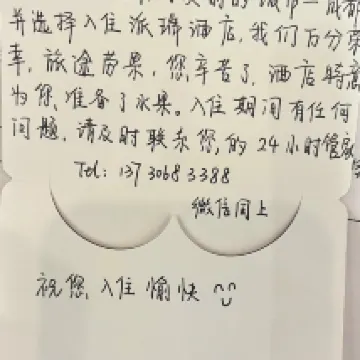 的城市—成都
并选择入住派瑞酒店,我们万分荣
幸,旅途劳累,您辛苦了,酒店特意
为您准备了水果。入住期间有任何
问题,请及时联系您的24小时管家
Tel: 137 3068 3388
微信同上
祝您入住愉快